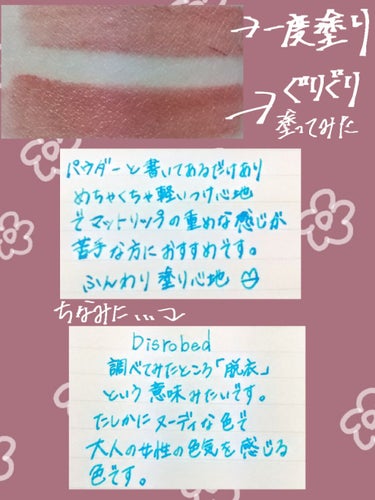 →一度塗り
→ぐりぐり
塗ってみた
パウダーと書いてあるだけあり
めちゃくちゃ軽いつけ心地
でマットリップの重めな感じが
苦手な方におすすめです。
ふんわり塗り心地
ちなみに...
Disrobed
調べてみたところ「脱衣」
という意味みたいです。
たしかにヌーディな色で
大人の女性の色気を感じる
色です。